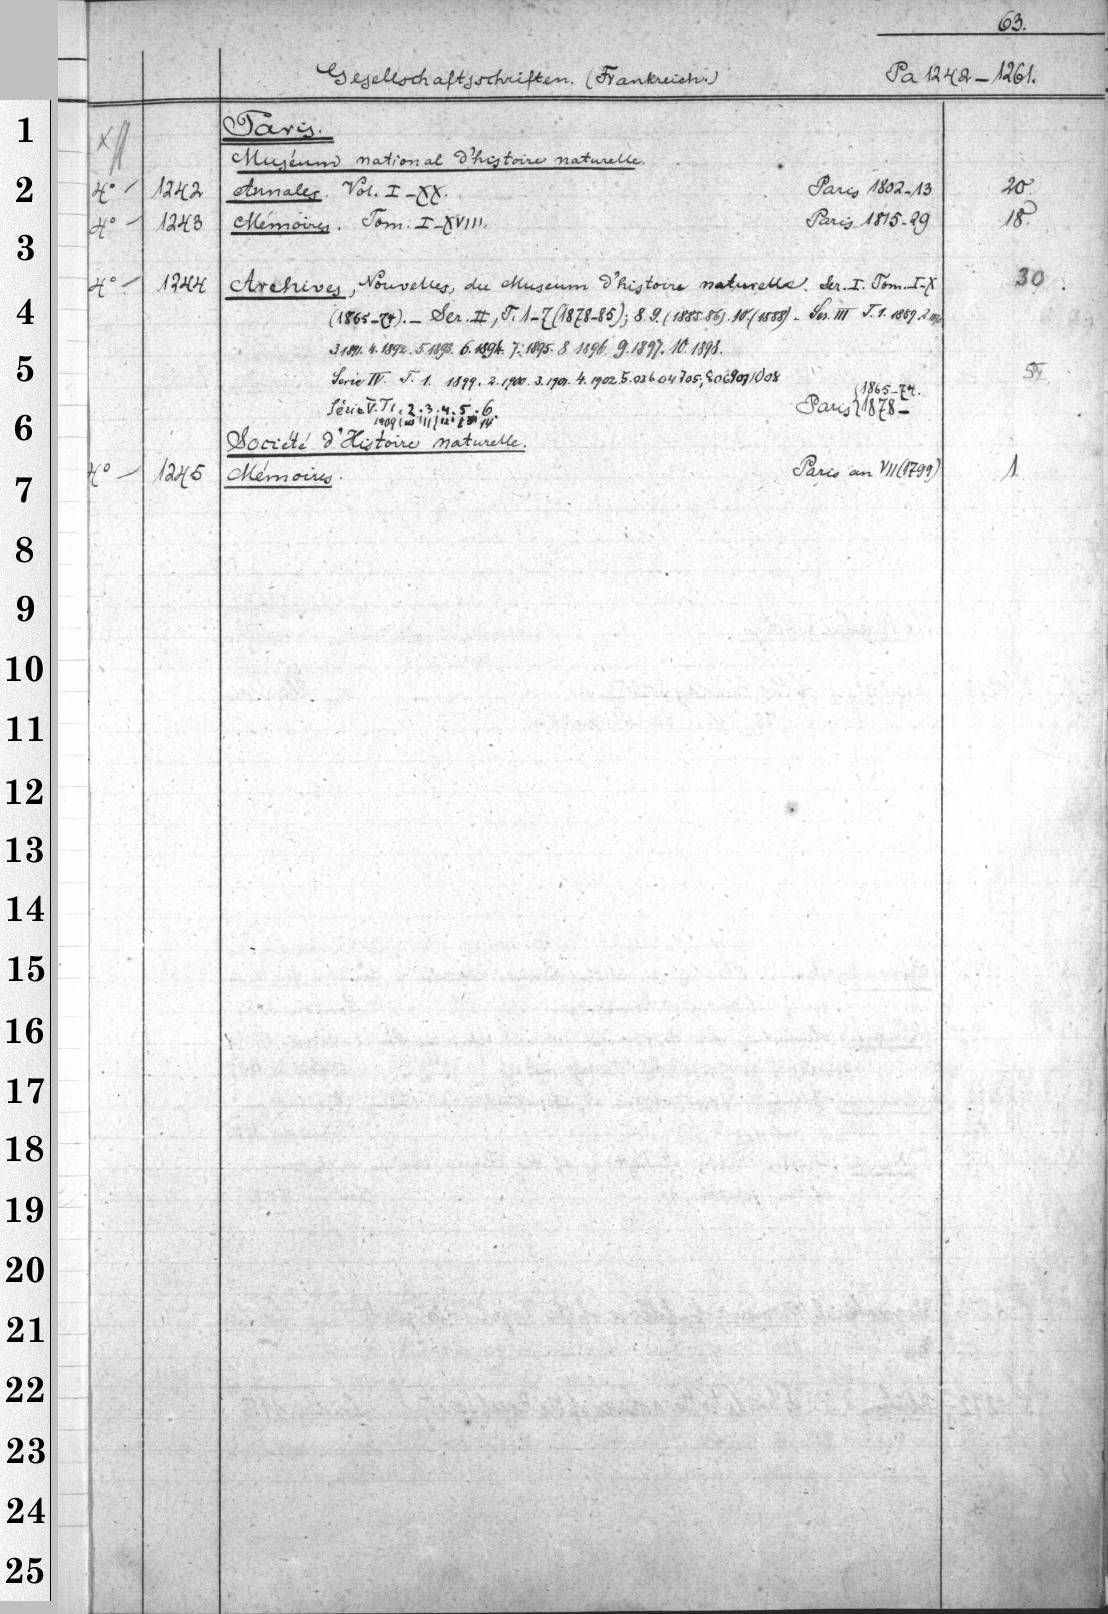 63.
Gesellschaftsschriften. (Frankreich.) Pa 1242–1261.
1 Paris.
Muséum national d'histoire naturelle.
2 4° 1242 Annales. Vol. I–XX. Paris 1802–13 20
4° 1243 Mémoires. Tom. I–XVIII. Paris 1815–29 18
3
4° 1244 Archives, Nouvelles, du Museum d'histoire naturelle. Ser. I. Tom. I–X 30
4 (1865–74). – Ser. II, T. 1–7 (1878–85); 8. 9. (1885.86). 10. (1888) – Ser. III T. 1. 1889. 2.
3 1891. 4. 1892. 5 1893. 6. 1894. 7. 1895. 8 1896 9. 1897. 10. 1898.
5 Serie IV. T. 1. 1899. 2. 1900. 3. 1901. 4. 1902. 5. 03 6 04 7 05; 8 06 9 07 10 08
Série V. T 1. 2. 3. 4. 5. 6. Paris {1865–74. 1878–
1909 10 11 12 13 14
6 Société d'Histoire naturelle.
7 4° 1245 Mémoires. Paris an VII (1799) 1
8
9
10
11
12
13
14
15
16
17
18
19
20
21
22
23
24
25